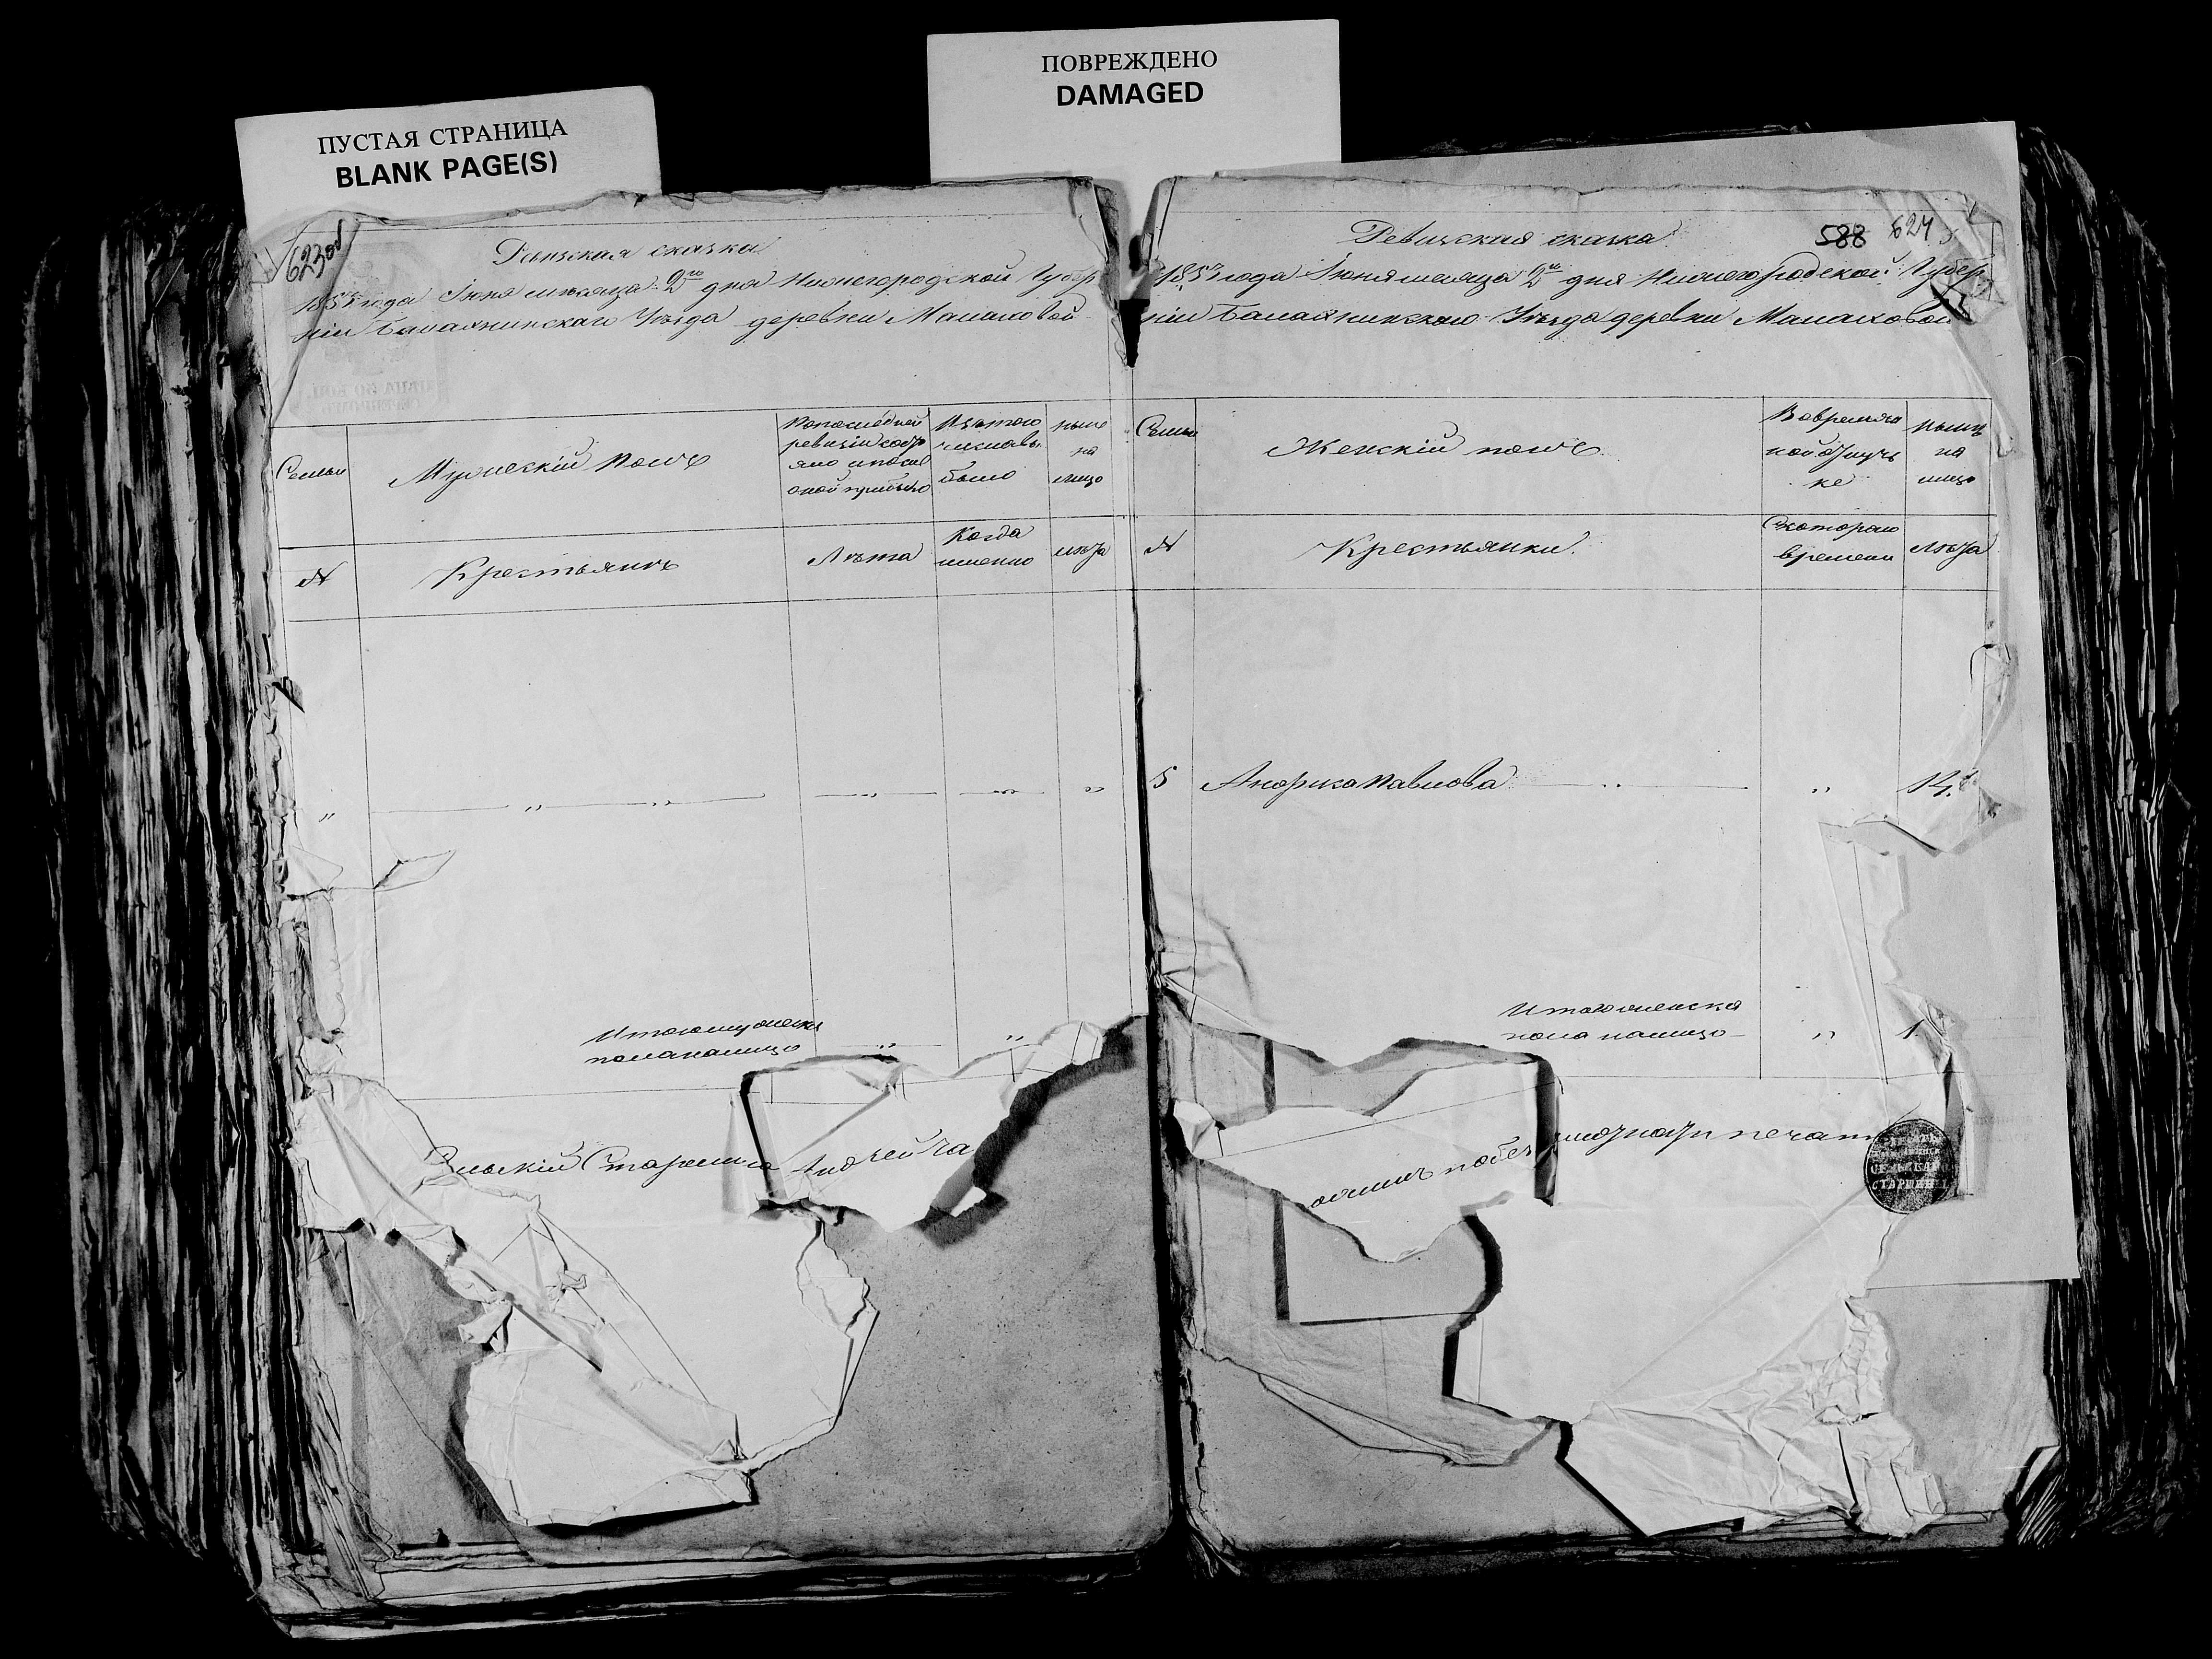 ПУСТАЯ СТРАНИЦА
BLANK PAGE(S)
ПОВРЕЖДЕНО
DAMAGED
623 об
Ревизская сказка
185 года Июня месяца 2го дня Нижегородской Губер
ніи Балахнинскаго Уѣзда деревни Малаховой
Семьи
Мужескій полъ
Попоследней
ревизіи состо
яло и после
оной прибыло
Изътого
числа вы
было
ныне
на
лицо
№
Крестьянъ
Лѣта
Когда
именно
лѣта
Итого мужеска
пола налицо
Старшина Андрей
588 624
Ревизская сказка
185 года Июня месяца 2го дня Нижегородской Губер
ніи Балахнинскаго Уѣзда деревни Малаховой
Семьи
Женскій полъ
Вовременной отлучке
ныне
на
лицо
№
Крестьянки.
Скотораго
времени
лѣта
5 Анфиса Павлова 14.
Итого женска
пола налицо 1.
печать
СЕЛЬСКАГО
СТАРШИНЫ